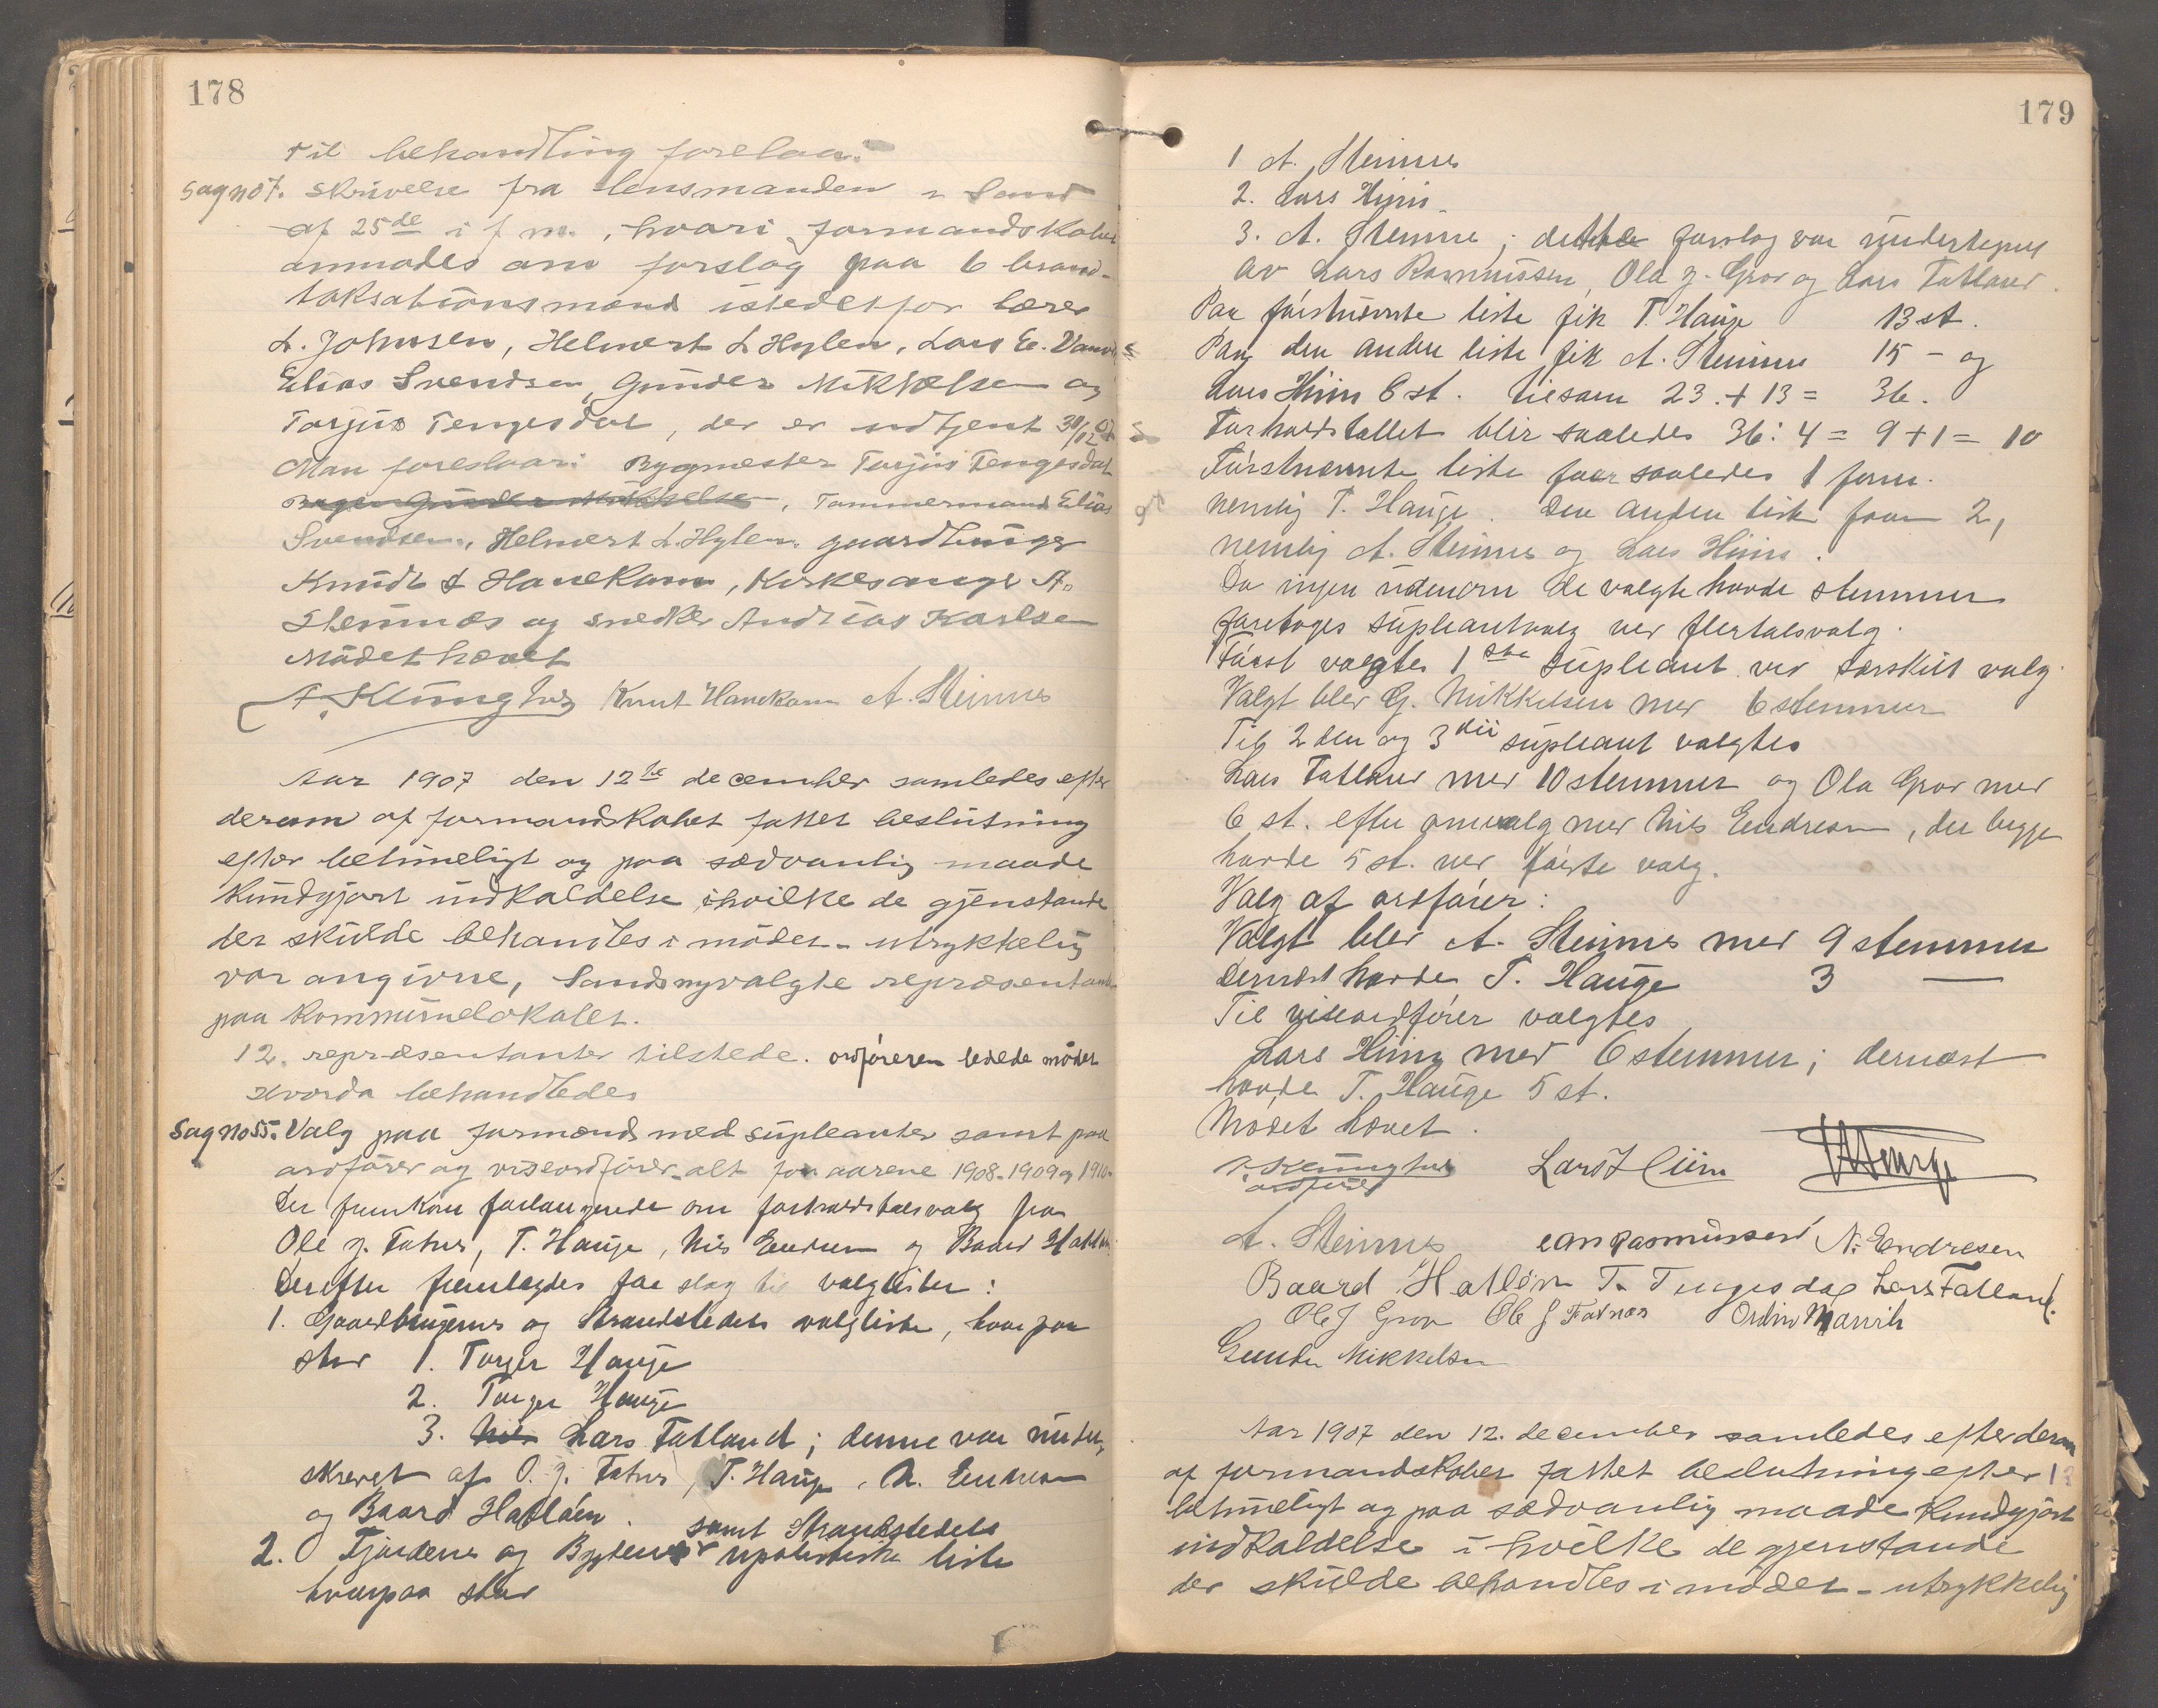 178
Til behandling forelaa:
Sag no 7. Skrivelse fra lensmanden i Sand
af 25de i f. m., hvori formandskabet
anmodes om forslag paa 6 brand-
taksationsmænd istedetfor lærer
L. Johnsen, Helmert L Hylen, Lars E.
Elias Svendsen, Gunder Mikkelsen og
Torjus Tengesdal, der er udtjent 31/12 07
Man foreslaar: Bygmester Torjus Tengesdal
Gunder Mikkelsen, Tømmermand Elias
Svendsen, Helmert L. Hylen, gaardbruger
Knudt Hanekam, Kirkesanger A.
Steinnes og snedker Andreas Karlsen
Mødet hævet
A. Klungtvedt Knut Hanekam A. Steinnes
Aar 1907 den 12te december samledes efter
derom af formandskabet fattet beslutning
efter betimeligt og paa sædvanlig maade
kundgjort indkaldelse ihvilke de gjenstande
der skulde behandles i mødet – utrykkelig
var angivne, Sands nyvalgte repræsentanter
paa Kommunelokalet.
12. repræsentanter tilstede. ordføreren ledede mødet
Hvorda behandledes
Sag no 55. Valg paa formænd med supleanter samt paa
ordfører og viseordfører – alt for aarene 1908 – 1909 og 1910.
Der fremkom forlangende om forholdstalsvalg fra
Ole J. Fatnes, T. Hauge, Nils Endresen og Baard Hatløen
Derefter fremlagdes forslag til valglister:
1. Gaardbrugernes og Strandstedets valgliste, hvorpaa
staar 1. Torger Hauge
2. Torger Hauge
3. Nils Lars Fatland; denne var under-
skrevet af O. J. Fatnes, T. Hauge, N. Endresen
og Baard Hatløen.
samt Strandstedets
2. Fjordenes og Bygdenes upolitiske liste
hvorpaa staar
179
1 A. Steinnes
2. Lars Hiim
3. A. Steinnes; dette forslag var undertegnet
av Lars Rasmussen, Ola J. Grov og Lars Fatland.
Paa førstnævnte liste fik T. Hauge 13 st.
Paa den anden liste fik A. Steinnes 15 – og
Lars Hiim 8 st. tilsam 23 + 13 = 36.
Forholdstallet blir saaledes 36: 4 = 9 + 1 = 10
Førstnævnte liste faar saaledes 1 form.
nemlig T. Hauge. Den anden liste faar 2,
nemlig A. Steinnes og Lars Hiim.
Da ingen udenom de valgte havde stemmer
foretoges supleantvalg ved flertalsvalg.
Først valgtes 1ste supleant ved særskilt valg.
Valgt blev G. Mikkelsen med 6 stemmer
Til 2den og 3die supleant valgtes
Lars Fatland med 10 stemmer og Ola Grov med
6 st. efter omvalg med Nils Endresen, der begge
havde 5 st. ved første valg.
Valg af ordfører:
Valgt blev A. Steinnes med 9 stemmer
Dernæst havde T. Hauge 3 —
Til viseordfører valgtes
Lars Hiim med 6 stemmer; dernæst
havde T. Hauge 5 st.
Mødet hævet.
A. Klungtvedt Lars L Hiim T Hauge
ordfører
A. Steinnes Lars Rasmussen N. Endresen
Baard Hatløen T. Tengesdal Lars Fatland.
Ole J Grov Ole J Fatnæs
Gunder Mikkelsen
Aar 1907 den 12. december samledes efter derom
af formandskabet fattet beslutning efter
betimeligt og paa sædvanlig maade kundgjort
indkaldelse i hvilke de gjenstande
der skulde behandles i mødet – utrykkelig